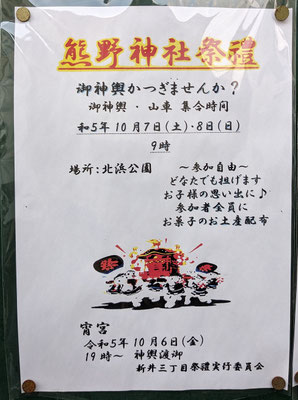 熊野神社祭禮
御神輿かつぎませんか？
御神輿・山車 集合時間
和5年 10月7日(土)・8日(日)
9時
場所：北浜公園
～参加自由～
どなたでも担げます
お子様の思い出に♪
参加者全員に
お菓子のお土産配布
宵宮
令和5年 10月6日(金)
19時～ 神輿渡御
新井三丁目祭禮実行委員会